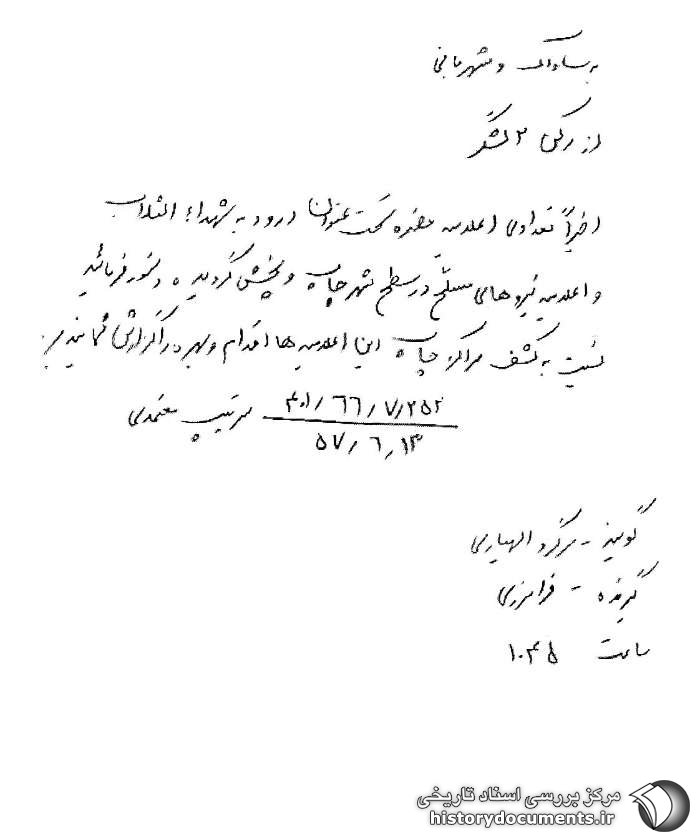 به ساواک و شهربانی
از رکن ۲ لشگر
اخیراً تعدادی اعلامیه مضره تحت عنوان درود به شهداء انقلاب
و اعلامیه نیروهای مسلح در سطح شهر چاپ و پخش گردیده دستور فرمائید
نسبت به کشف مراکز چاپ این اعلامیه ها اقدام و بهره را گزارش نمایند
۴۰۱/۶۶/۷/۲۵۲ سرتیپ معتمدی
۵۷/۶/۱۳
گوینده - سرگرد الهیاری
گیرنده - فرامرزی
ساعت ۱۰۴۵
مرکز بررسی اسناد تاریخی
historydocuments.ir